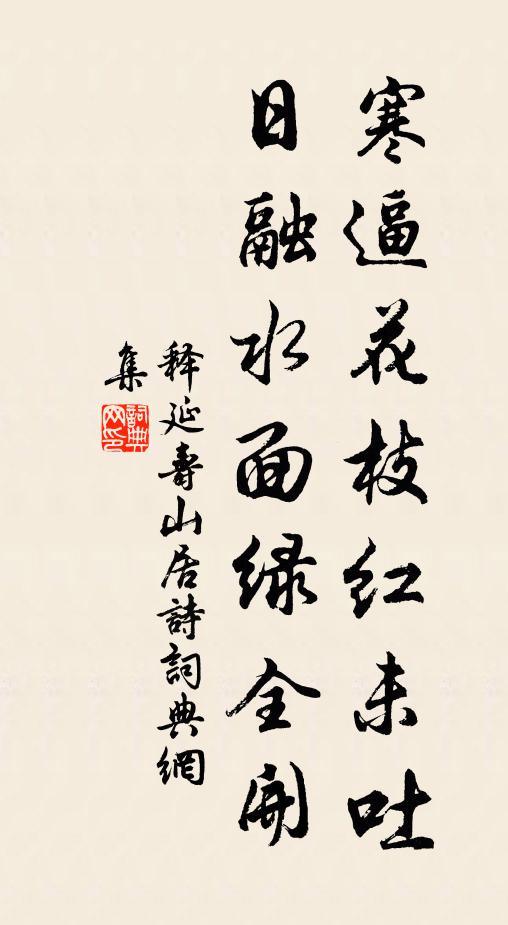 寒逼花枝红未吐
日融水面绿全開
释延壽山居詩詞典網
集
詞典网印